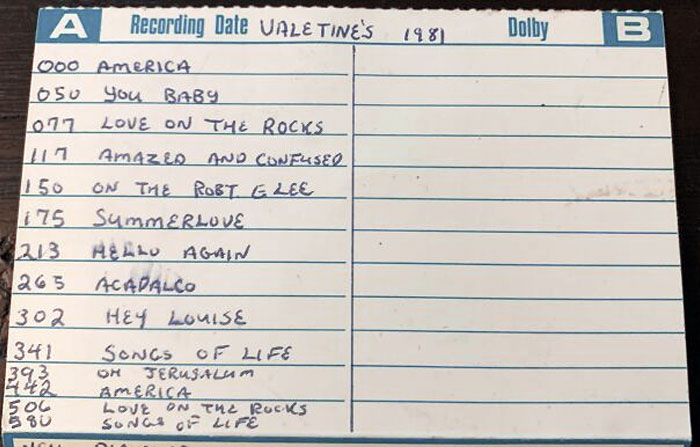 A Recording Date VALETINE'S 1981 Dolby B
000 AMERICA
050 YOU BABY
077 LOVE ON THE ROCKS
117 AMAZED AND CONFUSED
150 ON THE ROBT E LEE
175 SUMMERLOVE
213 HELLO AGAIN
265 ACAPALCO
302 HEY LOUISE
341 SONGS OF LIFE
393 OH JERUSALUM
442 AMERICA
506 LOVE ON THE ROCKS
580 SONGS OF LIFE